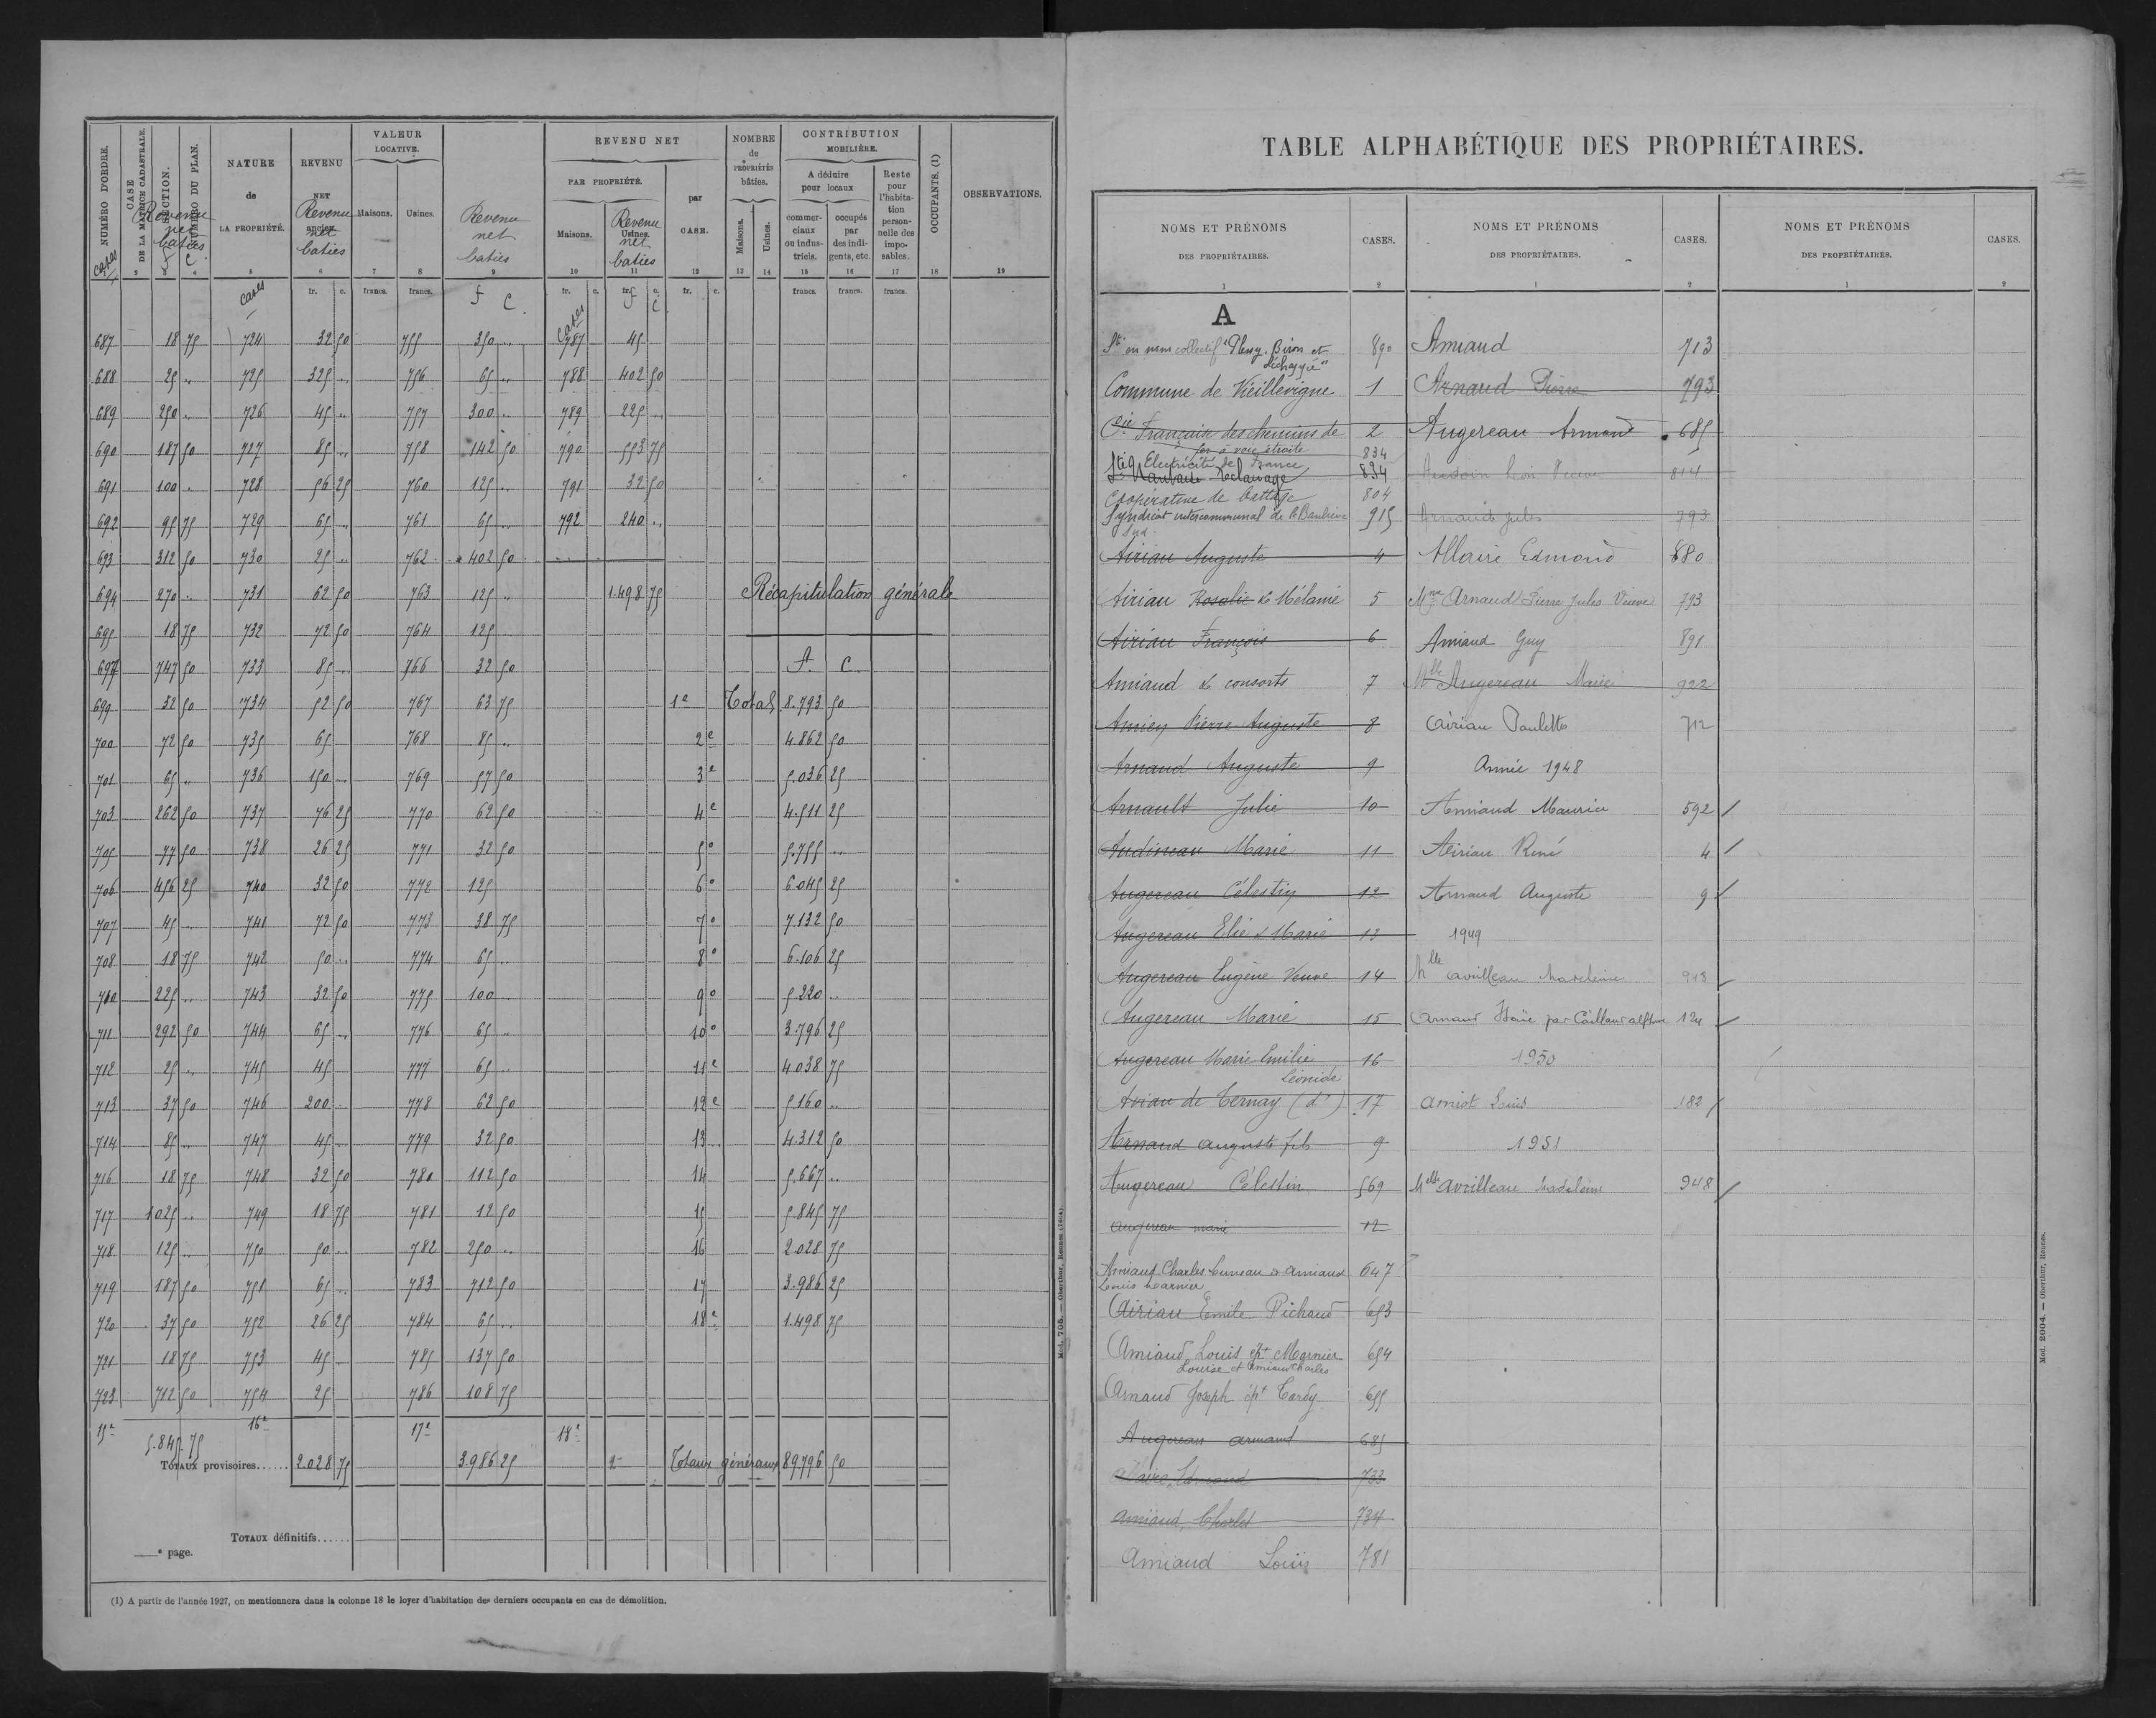 NUMÉRO D'ORDRE. CASE DE LA MATRICE CADASTRALE. SECTION. NUMÉRO DU PLAN. NATURE de LA PROPRIÉTÉ. REVENU NET ancien. VALEUR LOCATIVE. Maisons. Usines. REVENU NET PAR PROPRIÉTÉ. Maisons. Usines. par CASE. NOMBRE de PROPRIÉTÉS bâties. Maisons. Usines. CONTRIBUTION MOBILIÈRE. A déduire pour locaux commerciaux ou industriels. occupés par des indigents, etc. Reste pour l'habitation personnelle des imposables. OCCUPANTS. (1) OBSERVATIONS.
cases Revenu net baties f c Revenu net baties Revenu net baties Revenu net baties
2 4 5 6 7 8 9 10 11 12 13 14 15 16 17 18 19
cases fr. c. francs. francs. f c. fr. c. fr. c. fr. c. francs. francs. francs.
cases f c
687 18 75 724 32 50 755 350 .. 787 45
688 25 .. 725 325 .. 756 65 .. 788 402 50
689 250 .. 726 45 .. 757 300 .. 789 225 ..
690 187 50 727 85 .. 758 142 50 790 553 75
691 100 .. 728 56 25 760 125 .. 791 32 50
692 95 75 729 65 .. 761 65 .. 792 240 ..
693 312 50 730 25 .. 762 402 50
694 270 .. 731 62 50 763 125 .. 1.498 75 Récapitulation générale
695 18 75 732 72 50 764 125 ..
697 747 50 733 85 .. 766 32 50 f. c.
699 32 50 734 52 50 767 63 75 1e Total 8.793 50
700 72 50 735 65 768 85 .. 2e 4.862 50
701 65 .. 736 150 .. 769 57 50 3e 5.036 25
703 262 50 737 76 25 770 62 50 4e 4.511 25
705 77 50 738 26 25 771 32 50 5e 5.755 ..
706 456 25 740 32 50 772 125 6e 6.045 25
707 45 .. 741 72 50 773 38 75 7e 7.132 50
708 18 75 742 50 .. 774 65 .. 8e 6.106 25
710 225 .. 743 32 50 775 100 .. 9e 5.220 ..
711 292 50 744 65 .. 776 65 .. 10e 3.796 25
712 25 .. 745 45 777 65 .. 11e 4.038 75
713 37 50 746 200 .. 778 62 50 12e 5.160 ..
714 85 .. 747 45 .. 779 32 50 13 .. 4.312 50
716 18 75 748 32 50 780 112 50 14 5.667 ..
717 1025 .. 749 18 75 781 12 50 15 5.845 75
718 125 .. 750 50 .. 782 250 .. 16 2.028 75
719 187 50 751 65 .. 783 712 50 17 3.986 25
720 37 50 752 26 25 784 65 .. 18e 1.498 75
721 18 75 753 45 .. 785 137 50
723 712 50 754 25 786 108 75
15e 16e 17e 18e
5.845.75
TOTAUX provisoires...... 2.028 75 3.986 25 Totaux généraux 89.796 50
TOTAUX définitifs......
e page.
(1) A partir de l'année 1927, on mentionnera dans la colonne 18 le loyer d'habitation des derniers occupants en cas de démolition.
Mod. 705. — Oberthur, Rennes
TABLE ALPHABÉTIQUE DES PROPRIÉTAIRES.
NOMS ET PRÉNOMS DES PROPRIÉTAIRES. CASES. NOMS ET PRÉNOMS DES PROPRIÉTAIRES. CASES. NOMS ET PRÉNOMS DES PROPRIÉTAIRES. CASES.
1 2 1 2 1 2
A
Sté en nom collectif Biron et 890
Commune de Vieillevigne 1
Cie Française des chemins de 2
fer à voie étroite 834
Electricité de France
Sté Nantaise d'éclairage 834
Coopérative de battage 804
Syndicat intercommunal de 915
Sud
Airiau Auguste 4
Airiau Rosalie & Mélanie 5
Airiau François 6
Amiaud & consorts 7
Pierre Auguste 8
Arnaud Auguste 9
Arnault Julie 10
Audineau Marie 11
Augereau Célestin 12
Augereau Elie & Marie 13
Augereau Eugène Veuve 14
Augereau Marie 15
Augereau Marie Emilie 16
Léonide
Aviau de Ternay (d') 17
Arnaud Auguste fils 9
Augereau Célestin 569
Augereau Marie 12
Amiaud Charles Cuneau & Amiaud 647
Louis
Airiau Emile Pichaud 653
Amiaud Louis ept Marnier 654
Louise et Amiaud Charles
Arnaud Joseph ept Tardy 655
Augereau Armand 685
Allaire Edmond 733
Amiaud, Charles 734
Amiaud Louis 781
Amiaud 713
Arnaud Pierre 793
Augereau Armand 685
Léon Veuve 814
Arnaud Jules 793
Allaire Edmond 680
Mme Arnaud Pierre Jules Veuve 793
Amiaud Guy 891
Mlle Augereau Marie 922
Airiau Paulette 712
Année 1948
Amiaud Maurice 592
Airiau René 4
Arnaud Auguste 9
1949
Mlle Avrilleau Madeleine 948
Arnaud par Caillaud 124
1950
Amiot Louis 182
1951
Melle Avrilleau Madeleine 948
Mod. 2004. — Oberthur, Rennes.